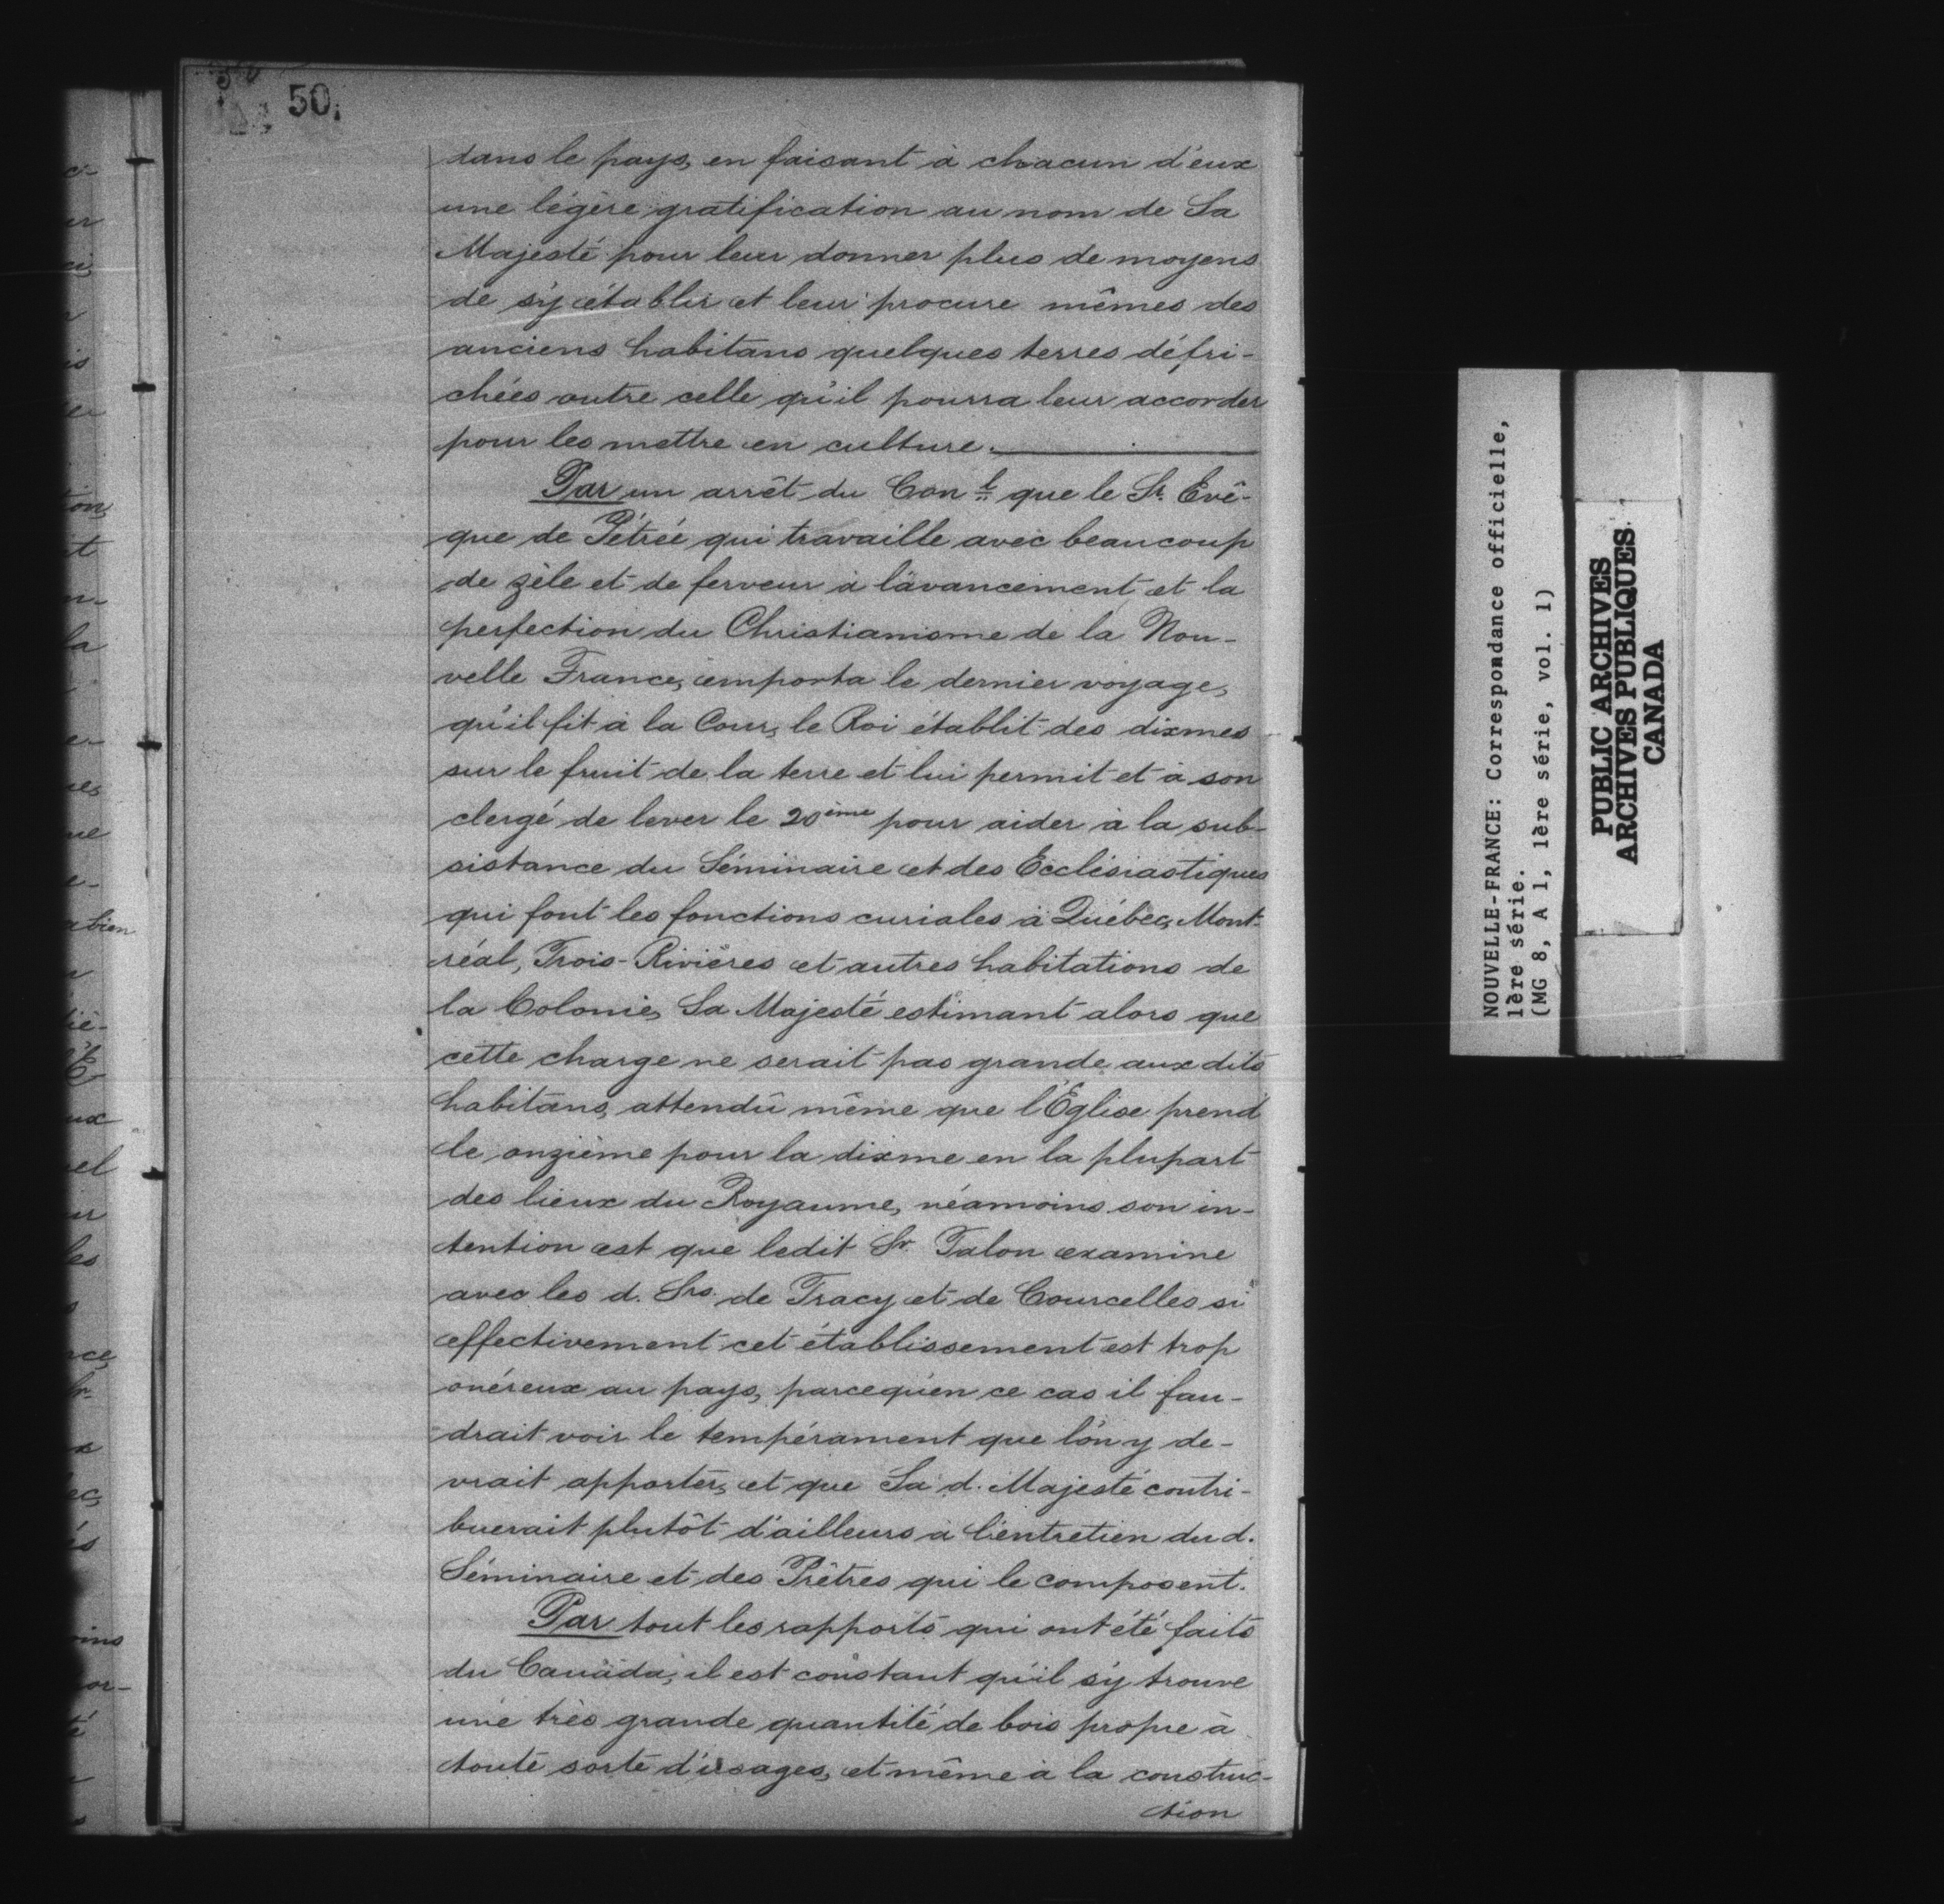 50.
dans le pays, en faisant à chacun d'eux
une légère gratification au nom de Sa
Majesté pour leur donner plus de moyens
de s'y établir et leur procure mêmes des
anciens habitans quelques terres défri-
chées outre celle qu'il pourra leur accorder
pour les mettre en culture.
Par un arrêt du Con.l que le Sr. Evê-
que de Pétrée qui travaille avec beaucoup
de zèle et de ferveur à l'avancement et la
perfection du Christianisme de la Nou-
velle France, emporta le dernier voyage,
qu'il fit à la Cour, le Roi établit des dixmes
sur le fruit de la terre et lui permit et à son
clergé de lever le 20ième pour aider à la sub-
sistance du Séminaire et des Ecclésiastiques
qui font les fonctions curiales à Québec, Mont-
réal, Trois-Rivières et autres habitations de
la Colonie, Sa Majesté estimant alors que
cette charge ne serait pas grande aux dits
habitans, attendû même que l'Église prend
le onzième pour la dixme en la plupart
des lieux du Royaume, néamoins son in-
tention est que ledit Sr. Talon examine
avec les d. Srs. de Tracy et de Courcelles si
effectivement cet établissement est trop
onéreux au pays, parcequ'en ce cas il fau-
drait voir le tempérament que l'on y de-
vrait apporter, et que Sa d. Majesté contri-
buerait plutôt d'ailleurs à l'entretien du d.
Séminaire et des Prêtres qui le composent.
Par tout les rapports qui ont été faits
du Canada, il est constant qu'il s'y trouve
une très grande quantité de bois propre à
toute sorte d'usages, et même à la construc-
tion
NOUVELLE-FRANCE: Correspondance officielle,
1ère série.
(MG 8, A 1, 1ère série, vol. 1)
PUBLIC ARCHIVES
ARCHIVES PUBLIQUES
CANADA